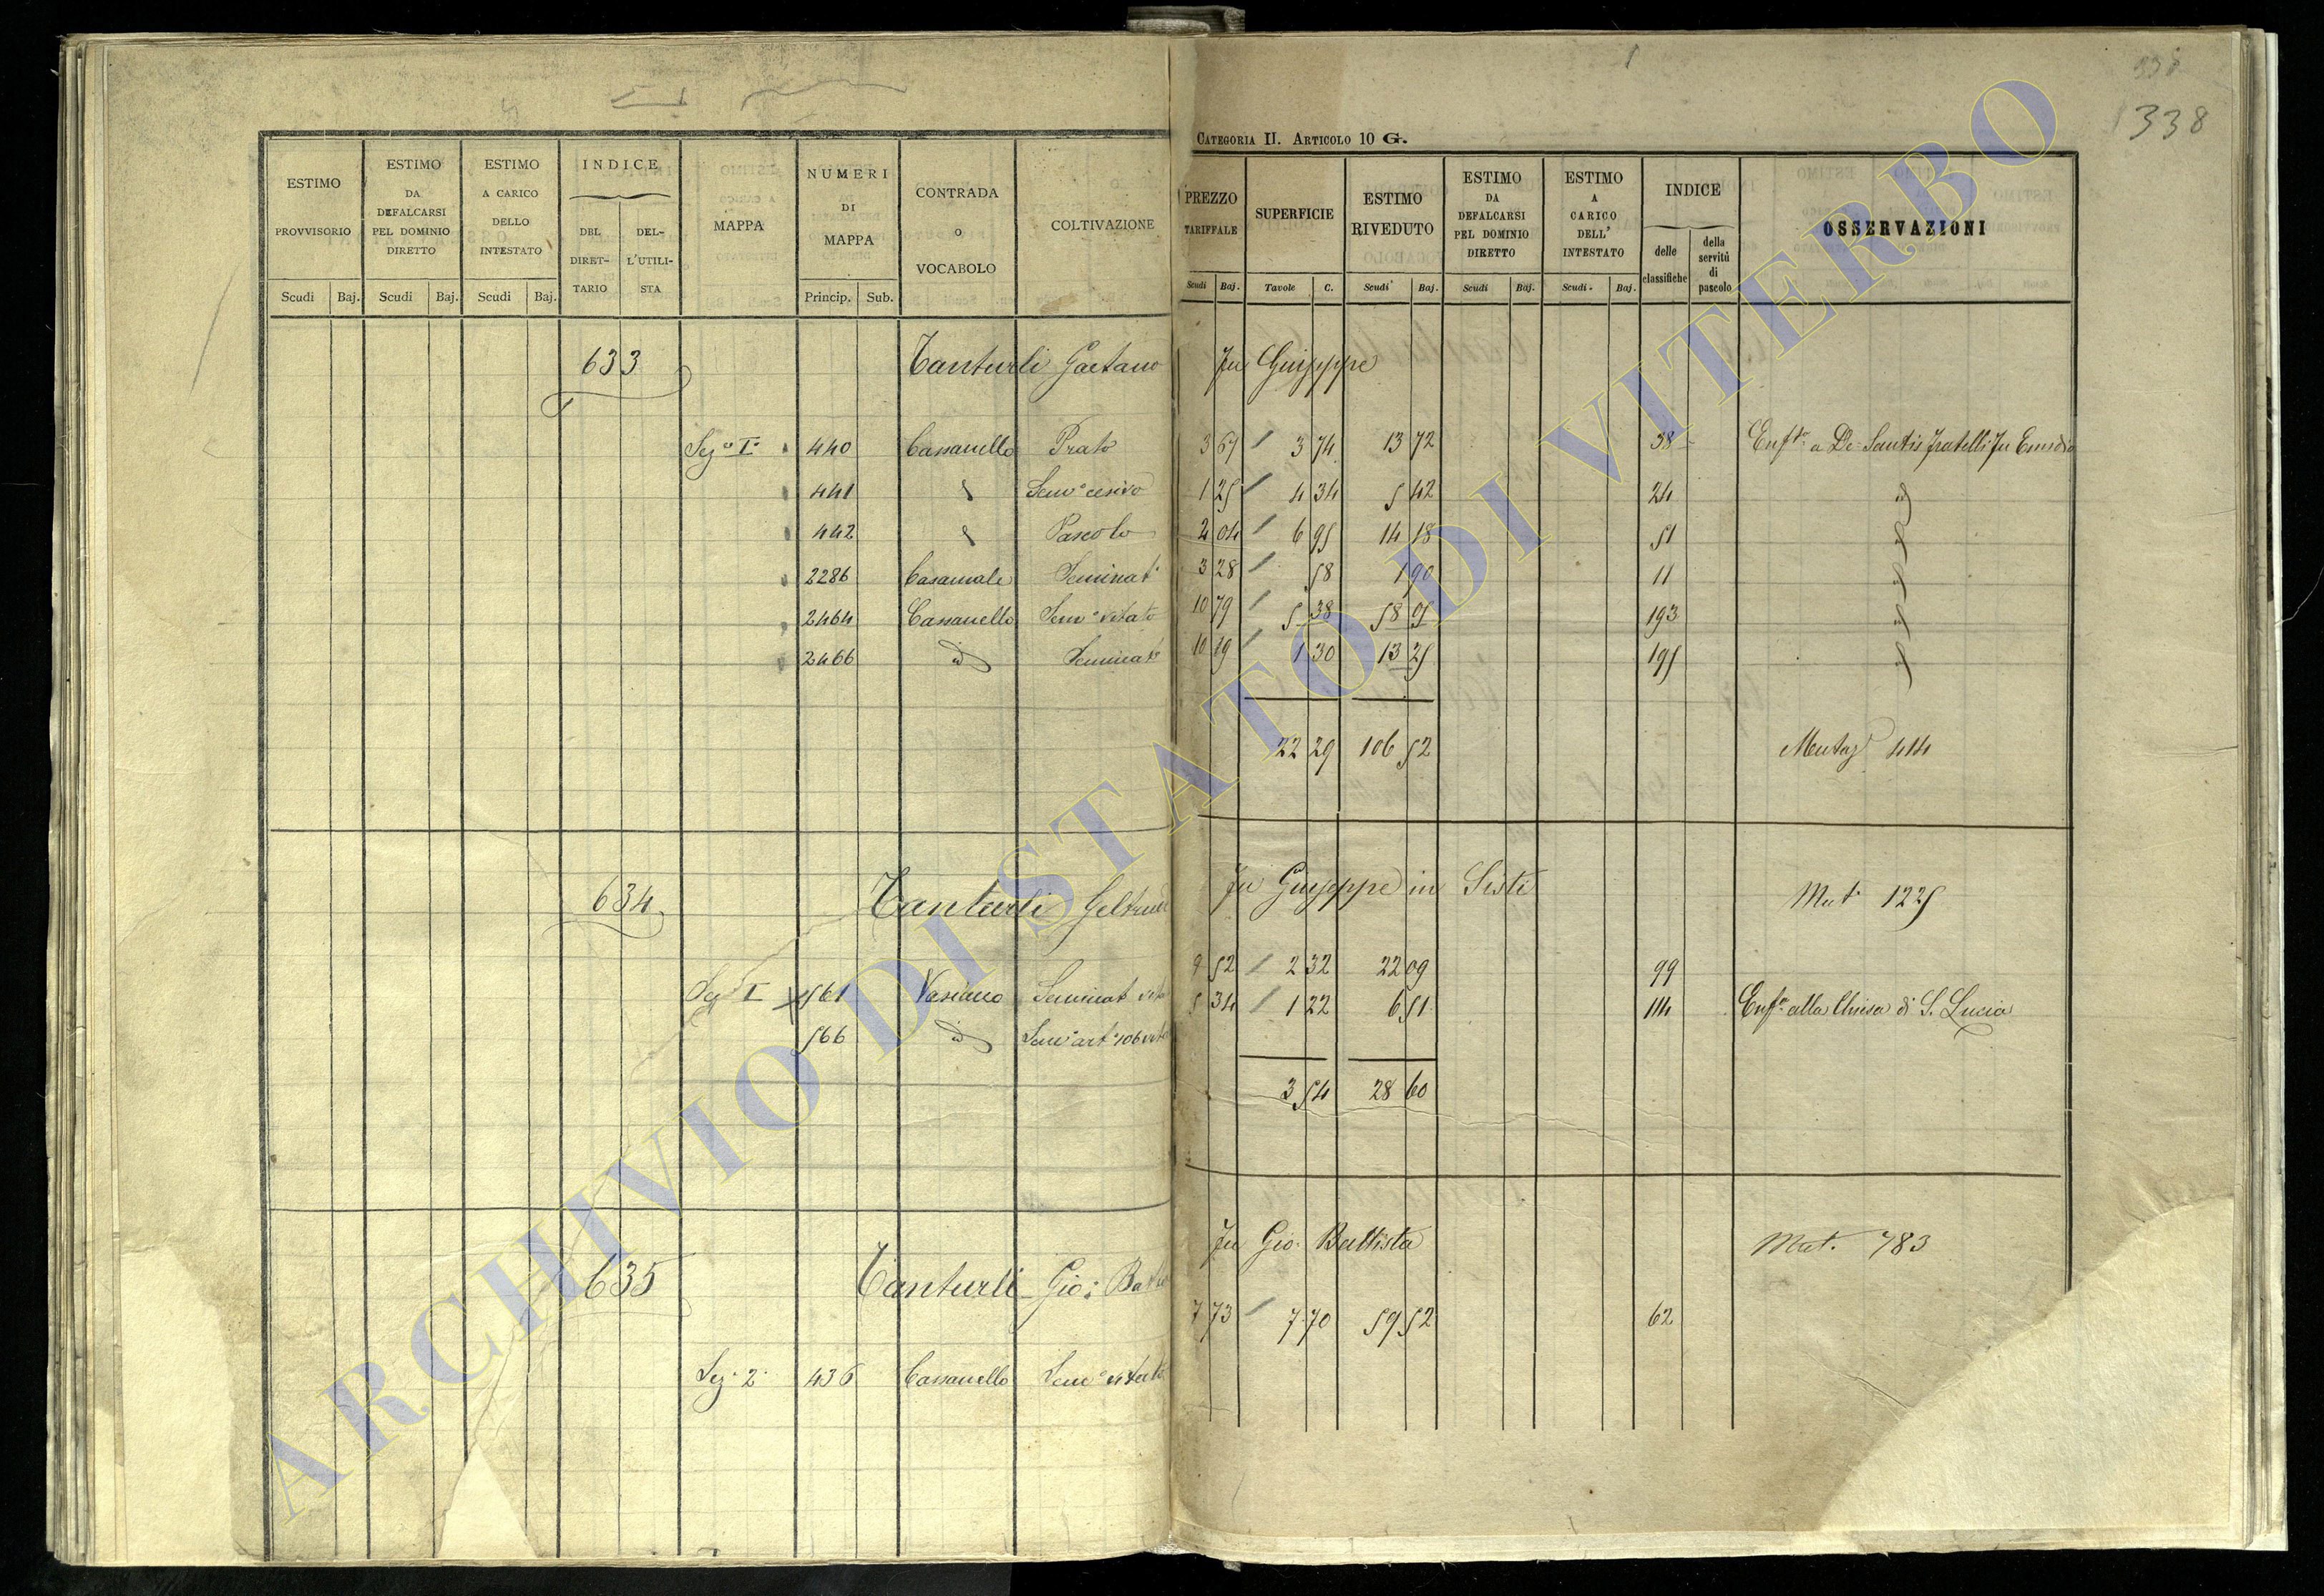 338
CATEGORIA II. ARTICOLO 10 G.
ESTIMO PROVVISORIO Scudi Baj.
ESTIMO DA DEFALCARSI PEL DOMINIO DIRETTO Scudi Baj.
ESTIMO A CARICO DELLO INTESTATO Scudi Baj.
INDICE DEL DIRET-TARIO DEL-L'UTILI-STA
MAPPA
NUMERI DI MAPPA Princip. Sub.
CONTRADA O VOCABOLO
COLTIVAZIONE
PREZZO TARIFFALE Scudi Baj.
SUPERFICIE Tavole C.
ESTIMO RIVEDUTO Scudi Baj.
ESTIMO DA DEFALCARSI PEL DOMINIO DIRETTO Scudi Baj.
ESTIMO A CARICO DELL' INTESTATO Scudi. Baj.
INDICE delle classifiche della servitù di pascolo
OSSERVAZIONI
633 Tanturli Gaetano fu Giuseppe
Sez.e I.a 440 Cassanello Prato 3 67 3 74 13 72 38 Enf.ta a De-Santis fratelli fu Emidio
441 Sem.o cesivo 1 25 4 34 5 42 24
442 Pascolo 2 04 6 95 14 18 51
2286 Casamale Seminat.o 3 28 58 1 90 11
2464 Cassanello Sem.o vitato 10 79 5 38 58 05 193
2466 id Seminat.o 10 19 1 30 13 25 195
22 29 106 52 Mutaz. 414
634 Tanturli Geltrude fu Giuseppe in Sisti Mut. 1225
Sez. I 561 Seminat. vita 9 52 2 32 22 09 99
566 id 5 34 1 22 6 51 114 Enf.a alla Chiesa di S. Lucia
3 54 28 60
635 Tanturli Gio: Batta fu Gio. Battista Mut. 783
Sez. 2. 436 Cassanello Sem.o vitato 7 73 7 70 59 52 62
ARCHIVIO DI STATO DI VITERBO